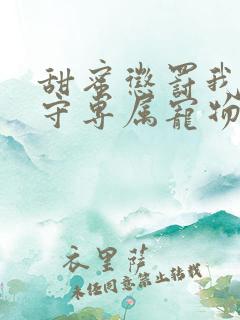 甜蜜惩罚我
守专属宠物
衣里萨
未经同意禁止转载